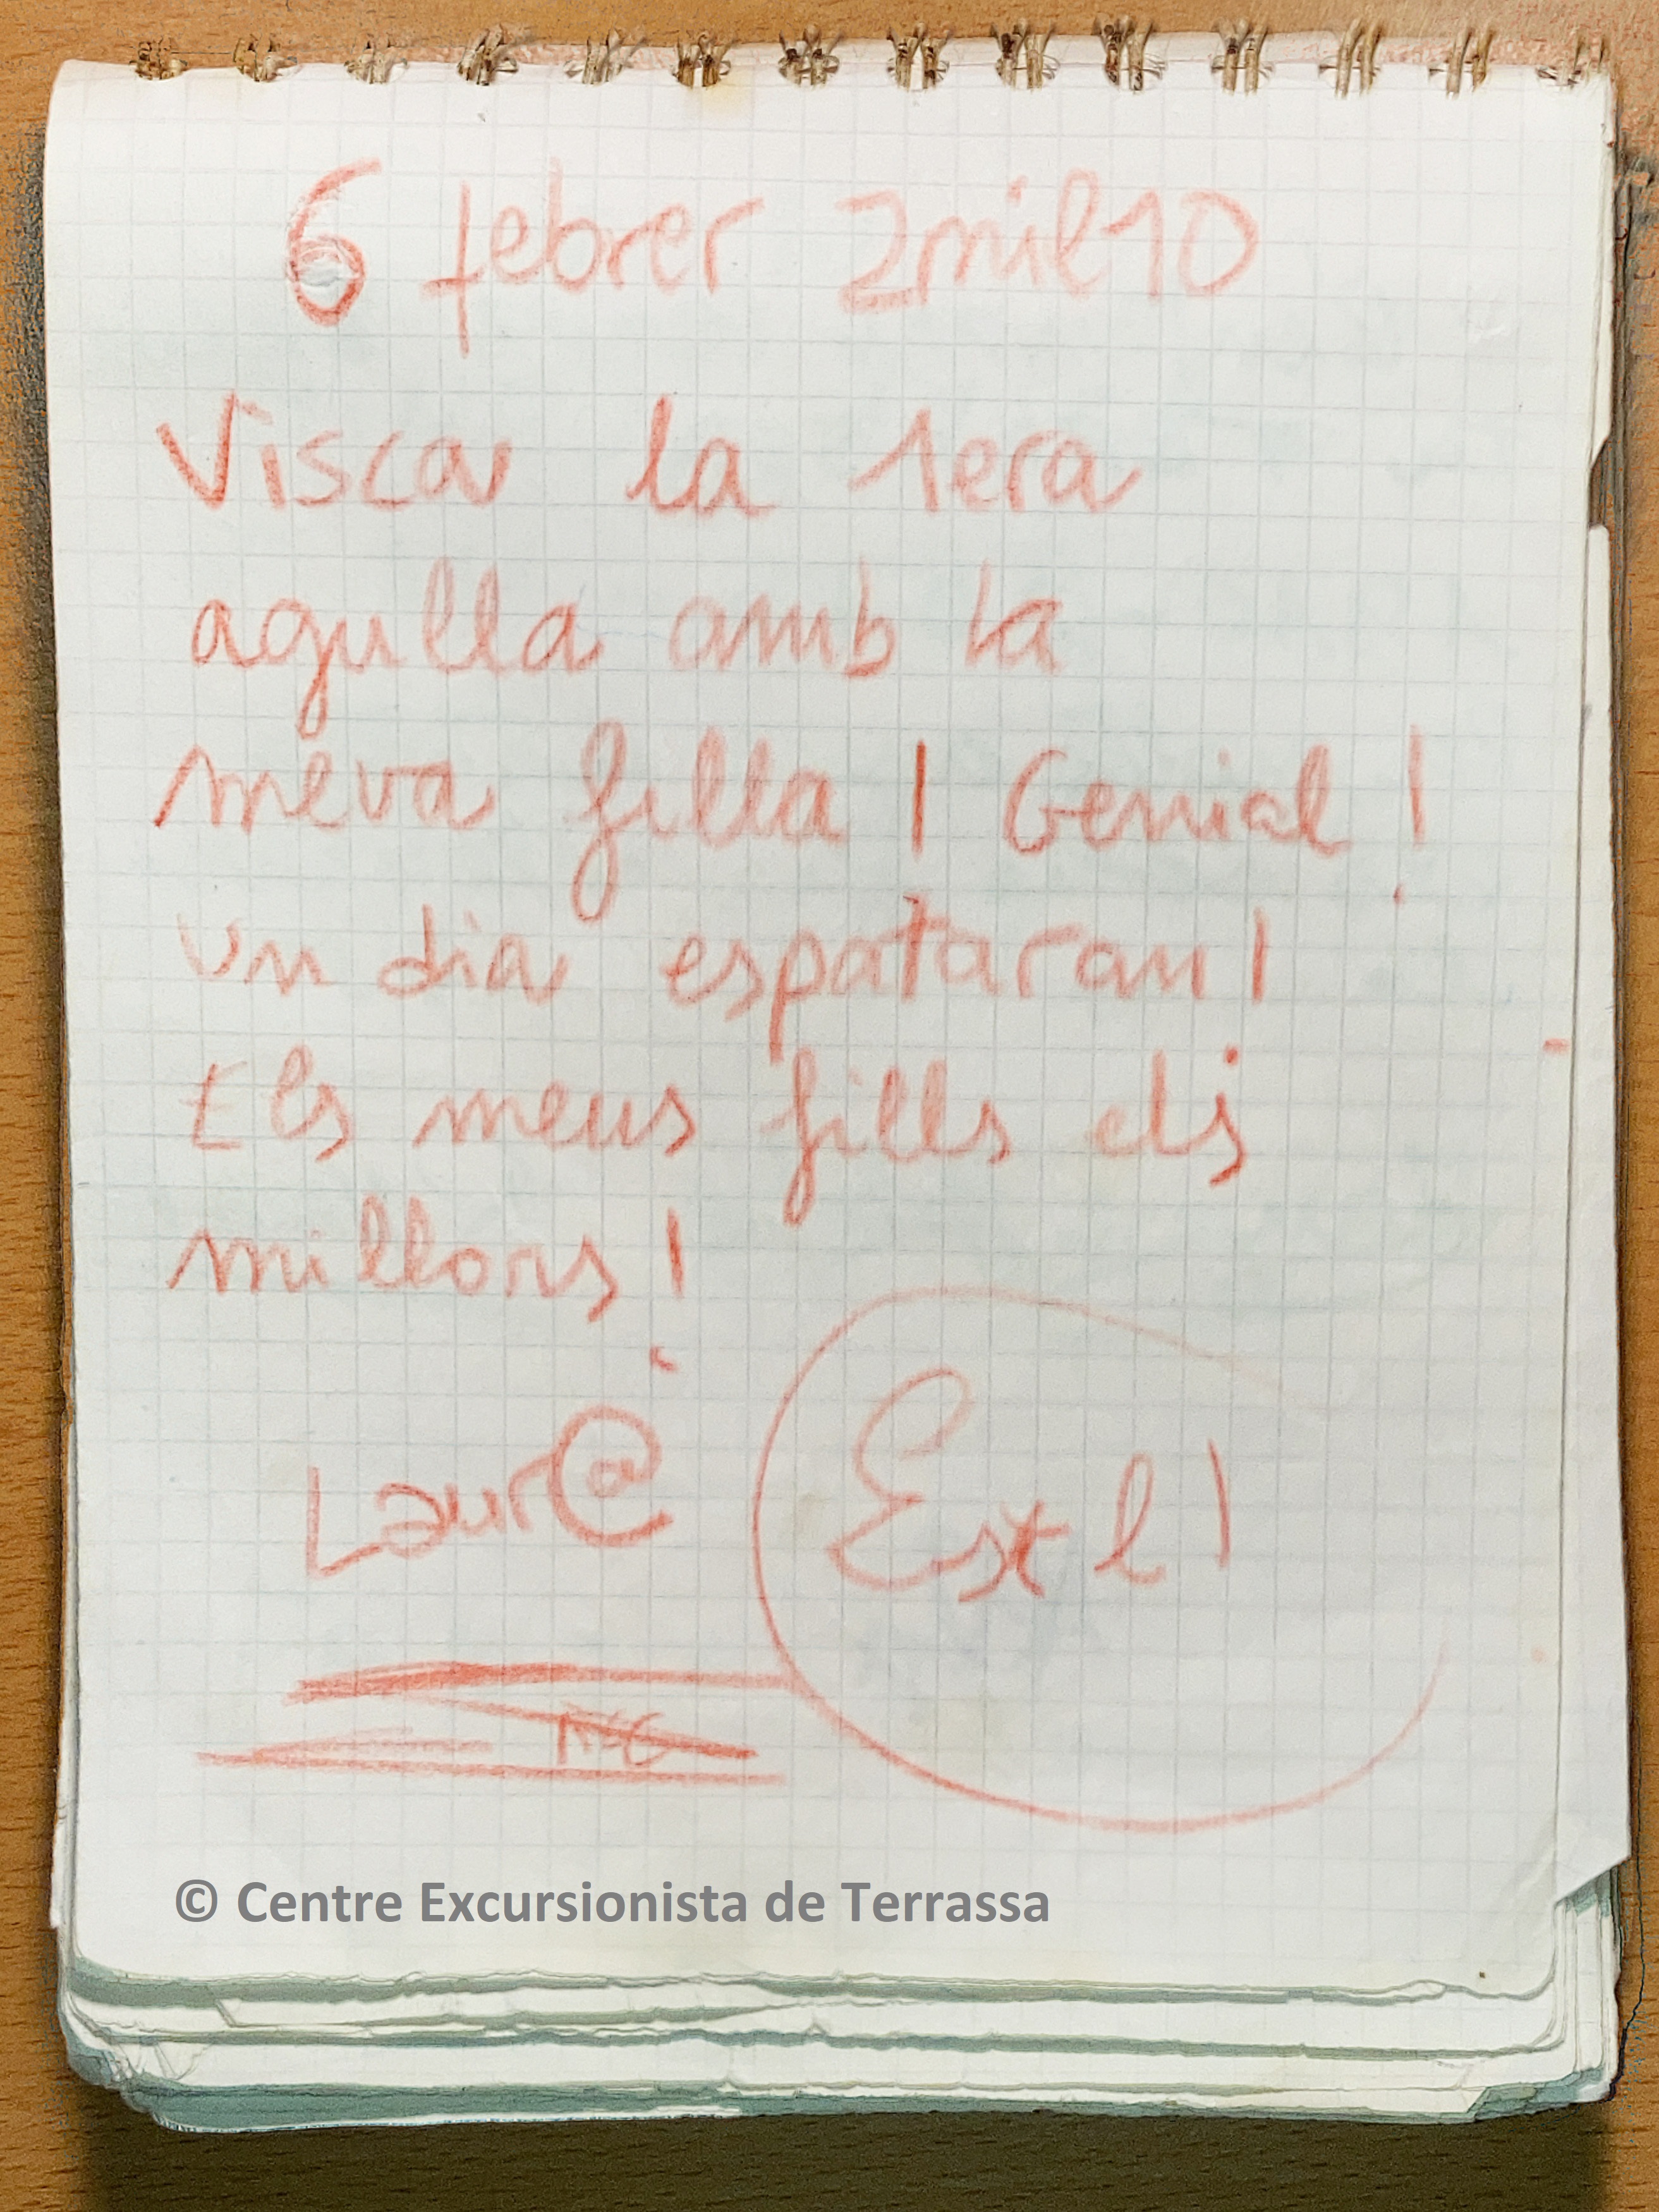 6 febrer 2mil10
Visca la 1era
agulla amb la
meva filla! Genial!
Un dia espatarran!
Els meus fills els
millors!
Laur@ Est l!
© Centre Excursionista de Terrassa